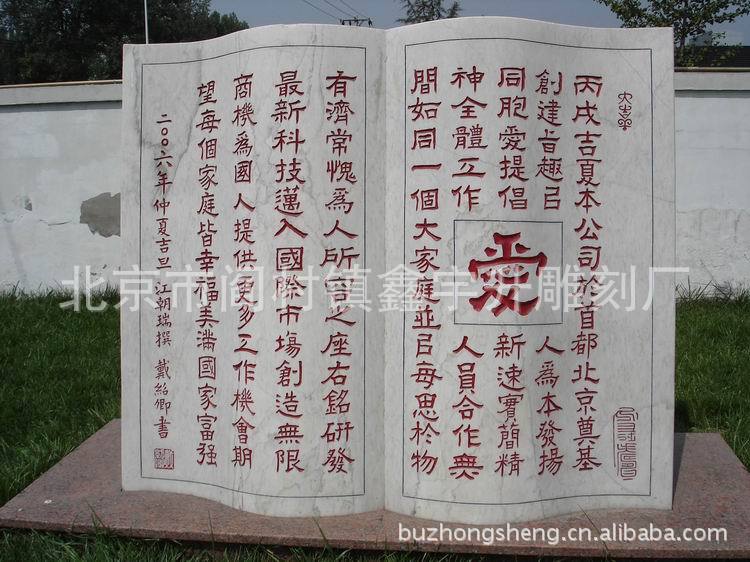 丙戌吉夏本公司於首都北京奠基
創建旨趣㠯人為本發揚
同胞愛提倡新速實簡精
神全體工作人員合作無
間如同一個大家庭並㠯每思於物
愛
有濟常愧為人所之座右銘研發
最新科技邁入國際市場創造無限
商機為國人提供更多工作機會期
望每個家庭皆幸福美滿國家富强
二〇〇六年仲夏吉旦 江朝瑞撰 戴紹卿書
北京市阎村镇鑫宇雕刻厂
buzhongsheng.cn.alibaba.com